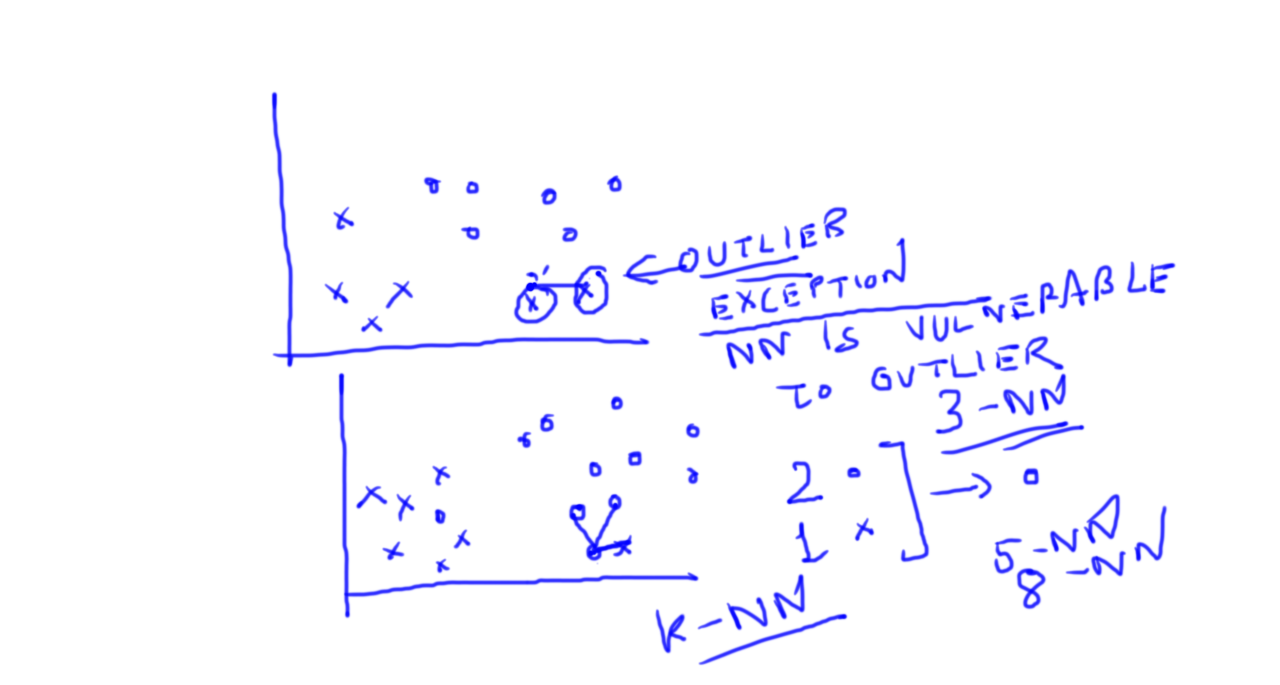 OUTLIER
EXCEPTION
NN IS VULNERABLE
TO OUTLIER
3-NN
2 o
1 x
→ o
5-NN
8-NN
K-NN